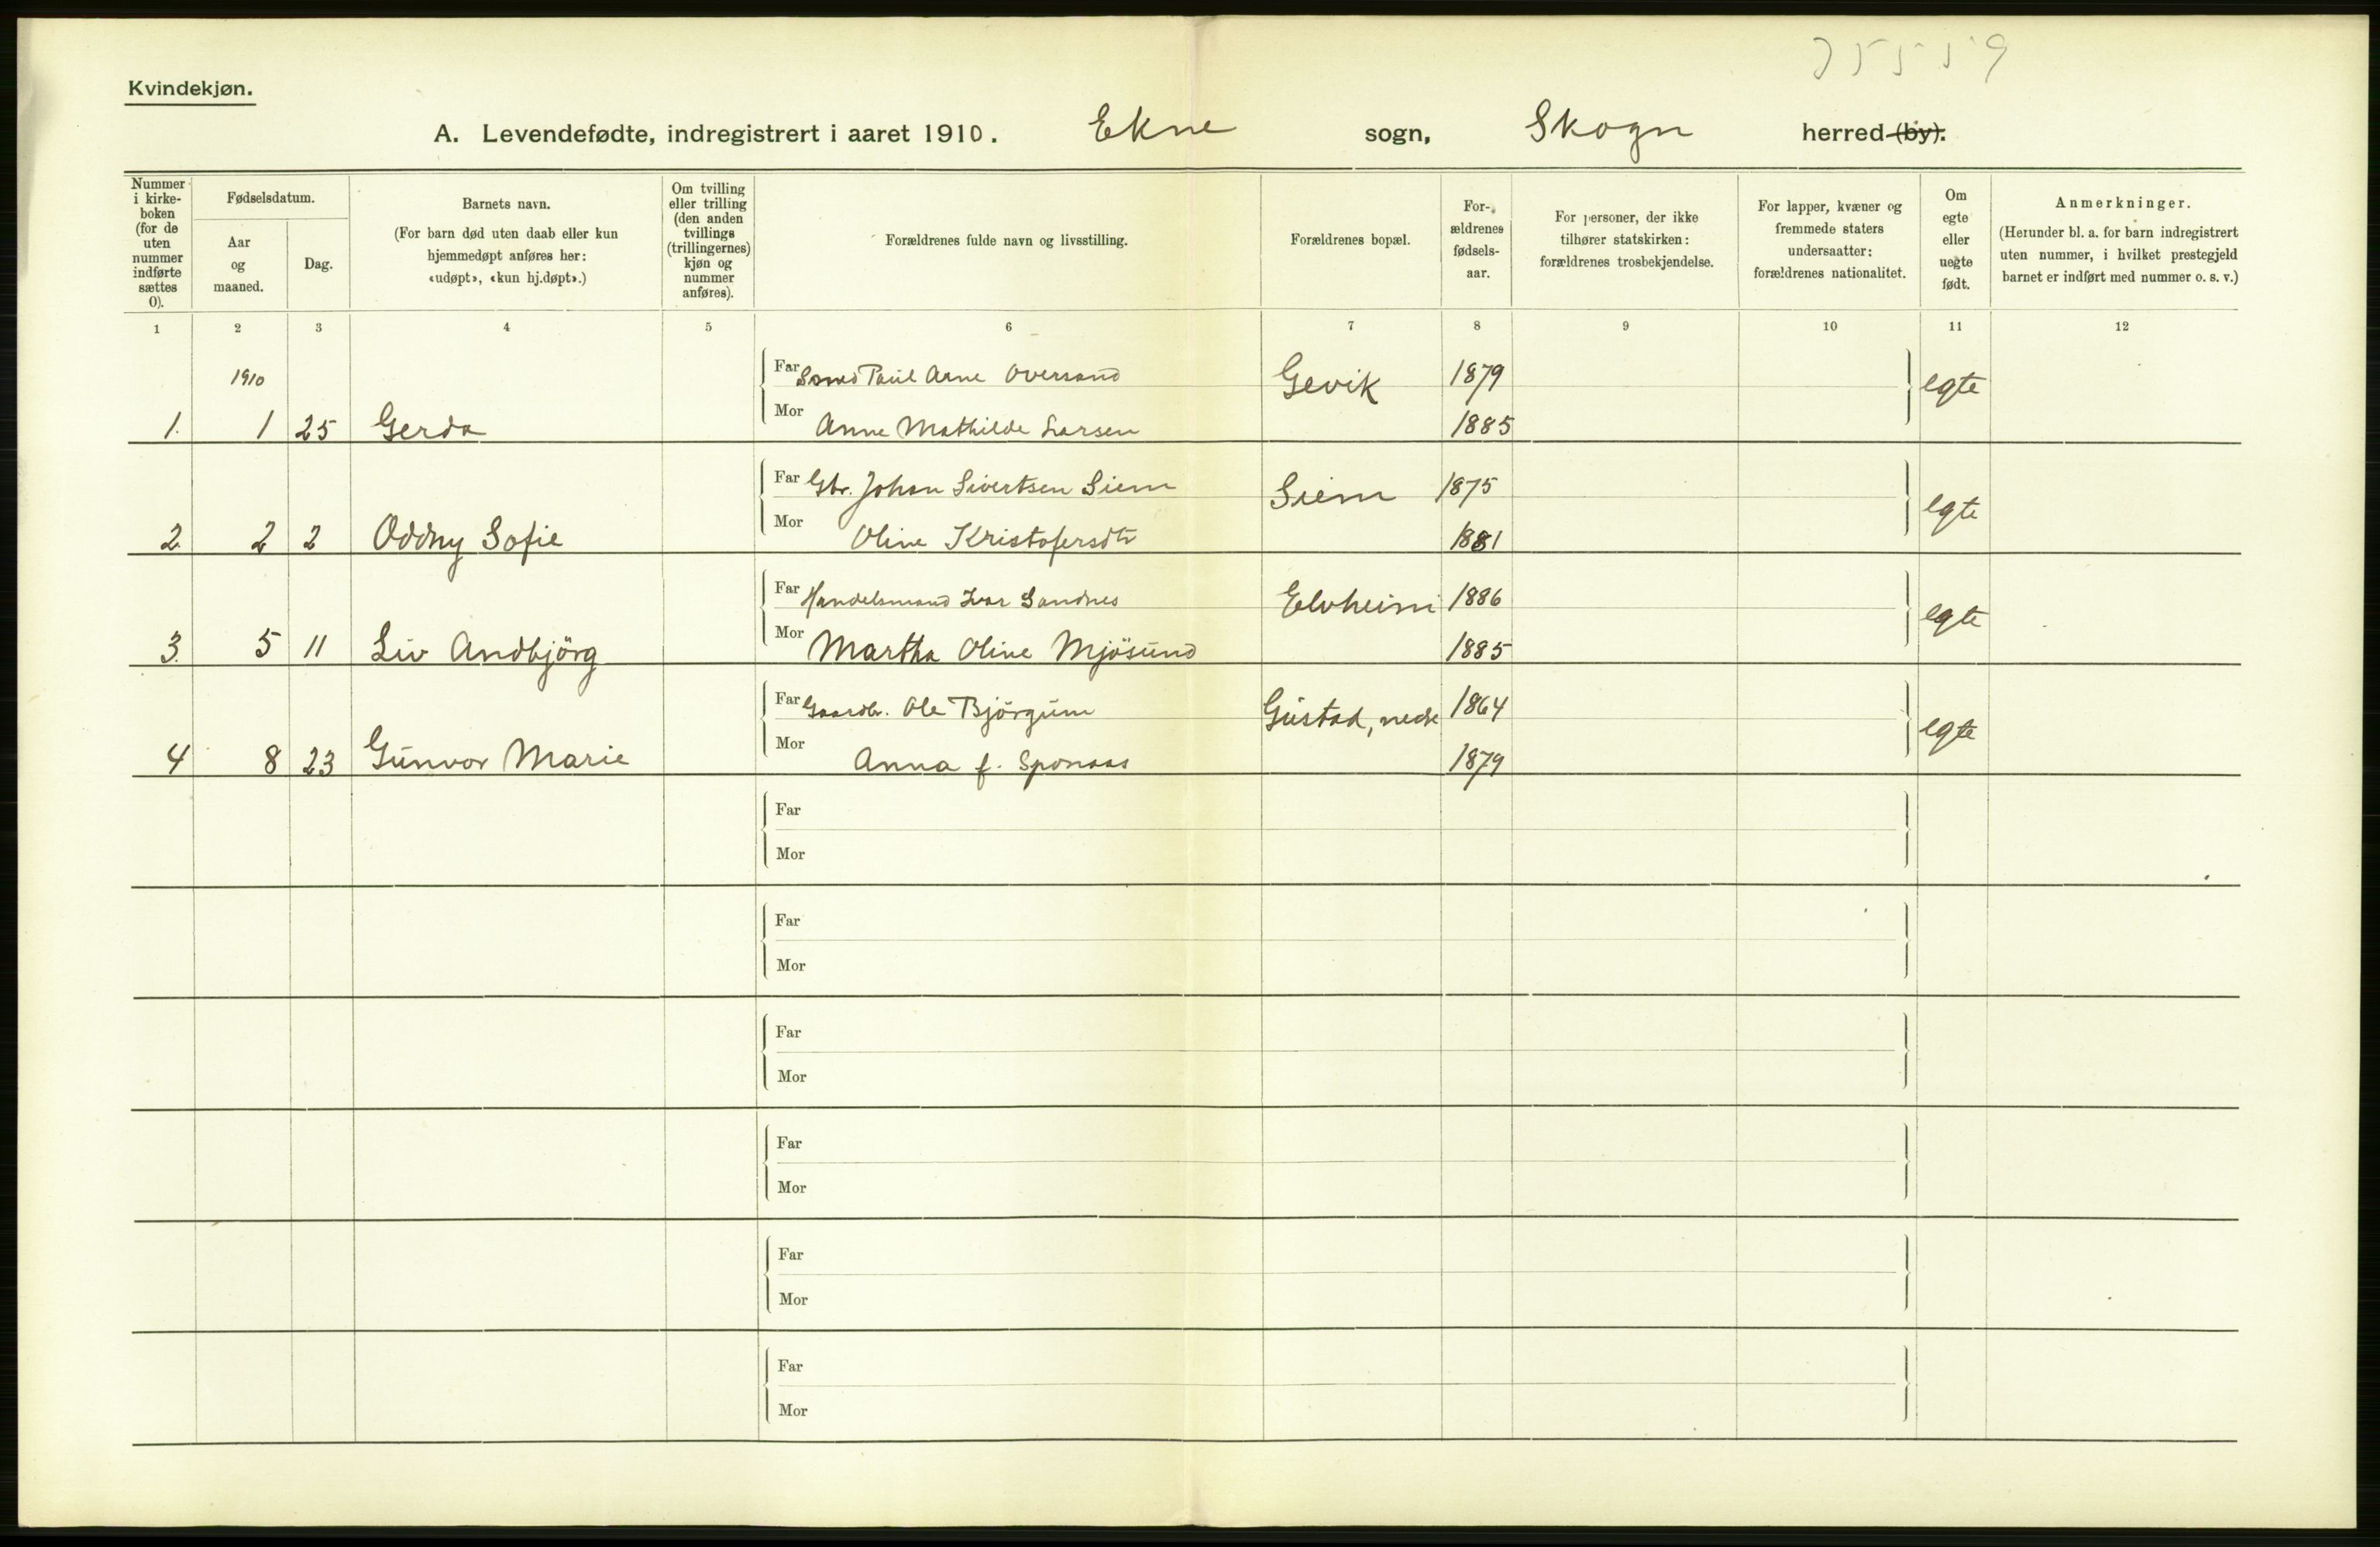 Kvindekjøn.
A. Levendefødte, indregistrert i aaret 1910. Ekne sogn, Skogn herred (by).
Nummer i kirke-boken (for de uten nummer indførte sættes 0).
Fødselsdatum.
Aar og maaned.
Dag.
Barnets navn.
(For barn død uten daab eller kun hjemmedøpt anføres her: «udøpt», «kun hj.døpt».)
Om tvilling eller trilling (den anden tvillings (trillingernes) kjøn og nummer anføres).
Forældrenes fulde navn og livsstilling.
Forældrenes bopæl.
For-ældrenes fødsels-aar.
For personer, der ikke tilhører statskirken: forældrenes trosbekjendelse.
For lapper, kvæner og fremmede staters undersaatter: forældrenes nationalitet.
Om egte eller uegte født.
Anmerkninger.
(Herunder bl. a. for barn indregistrert uten nummer, i hvilket prestegjeld barnet er indført med nummer o. s. v.)
1 2 3 4 5 6 7 8 9 10 11 12
1910 Far Smed Paul Arne Oversand Gevik 1879 egte
1. 1 25 Gerda Mor Anne Mathilde Larsen 1885
Far Gbr. Johan Sivertsen Siem Siem 1875 egte
2. 2 2 Oddny Sofie Mor Oline Kristofersdtr 1881
Far Handelsmand Ivar Sandnes Elvheim 1886 egte
3. 5 11 Liv Andbjörg Mor Martha Oline Mjösund 1885
Far Gaardbr. Ole Bjørgum Gustad, nedre 1864 egte
4 8 23 Gunvor Marie Mor Anna f. Sponaas 1879
Far
Mor
Far
Mor
Far
Mor
Far
Mor
Far
Mor
Far
Mor